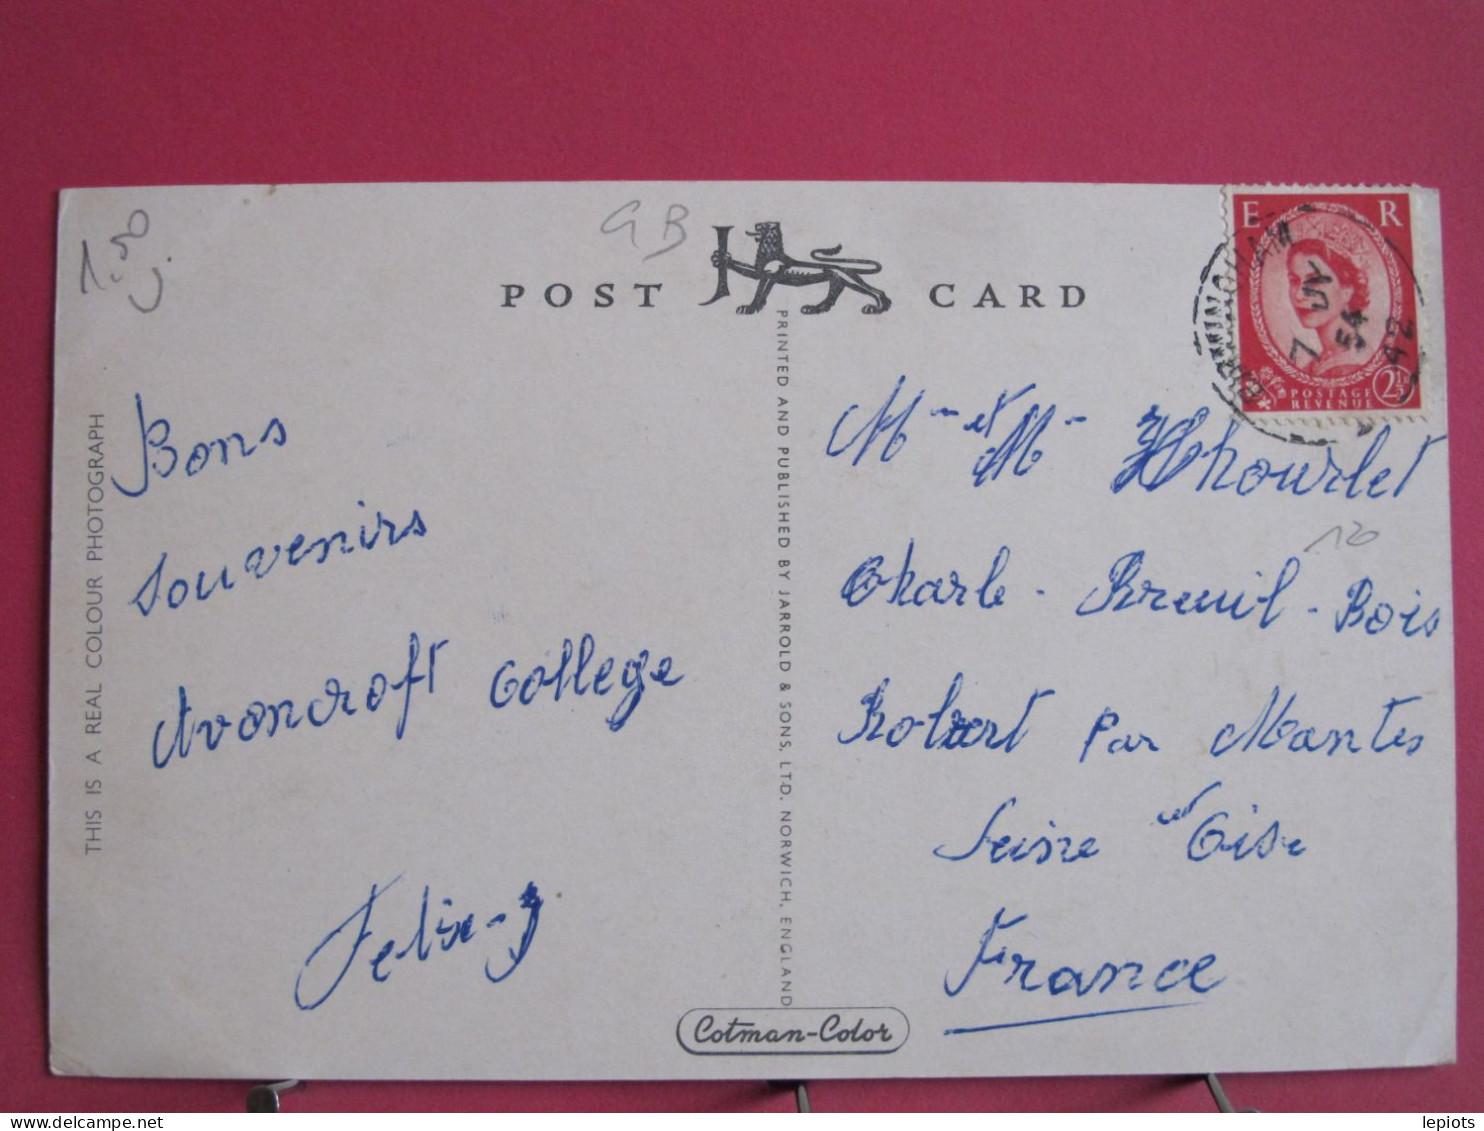 1.50
GB
POST CARD
E R
BIRMINGHAM
7 JY
54
42
POSTAGE
REVENUE
2½
THIS IS A REAL COLOUR PHOTOGRAPH
PRINTED AND PUBLISHED BY JARROLD & SONS, LTD. NORWICH, ENGLAND
Bons
souvenirs
Avoncroft College
Felix-J
M et M
120
Charle - Breuil - Bois
Robert par Mantes
Seine et Oise
France
Cotman-Color
lepiots